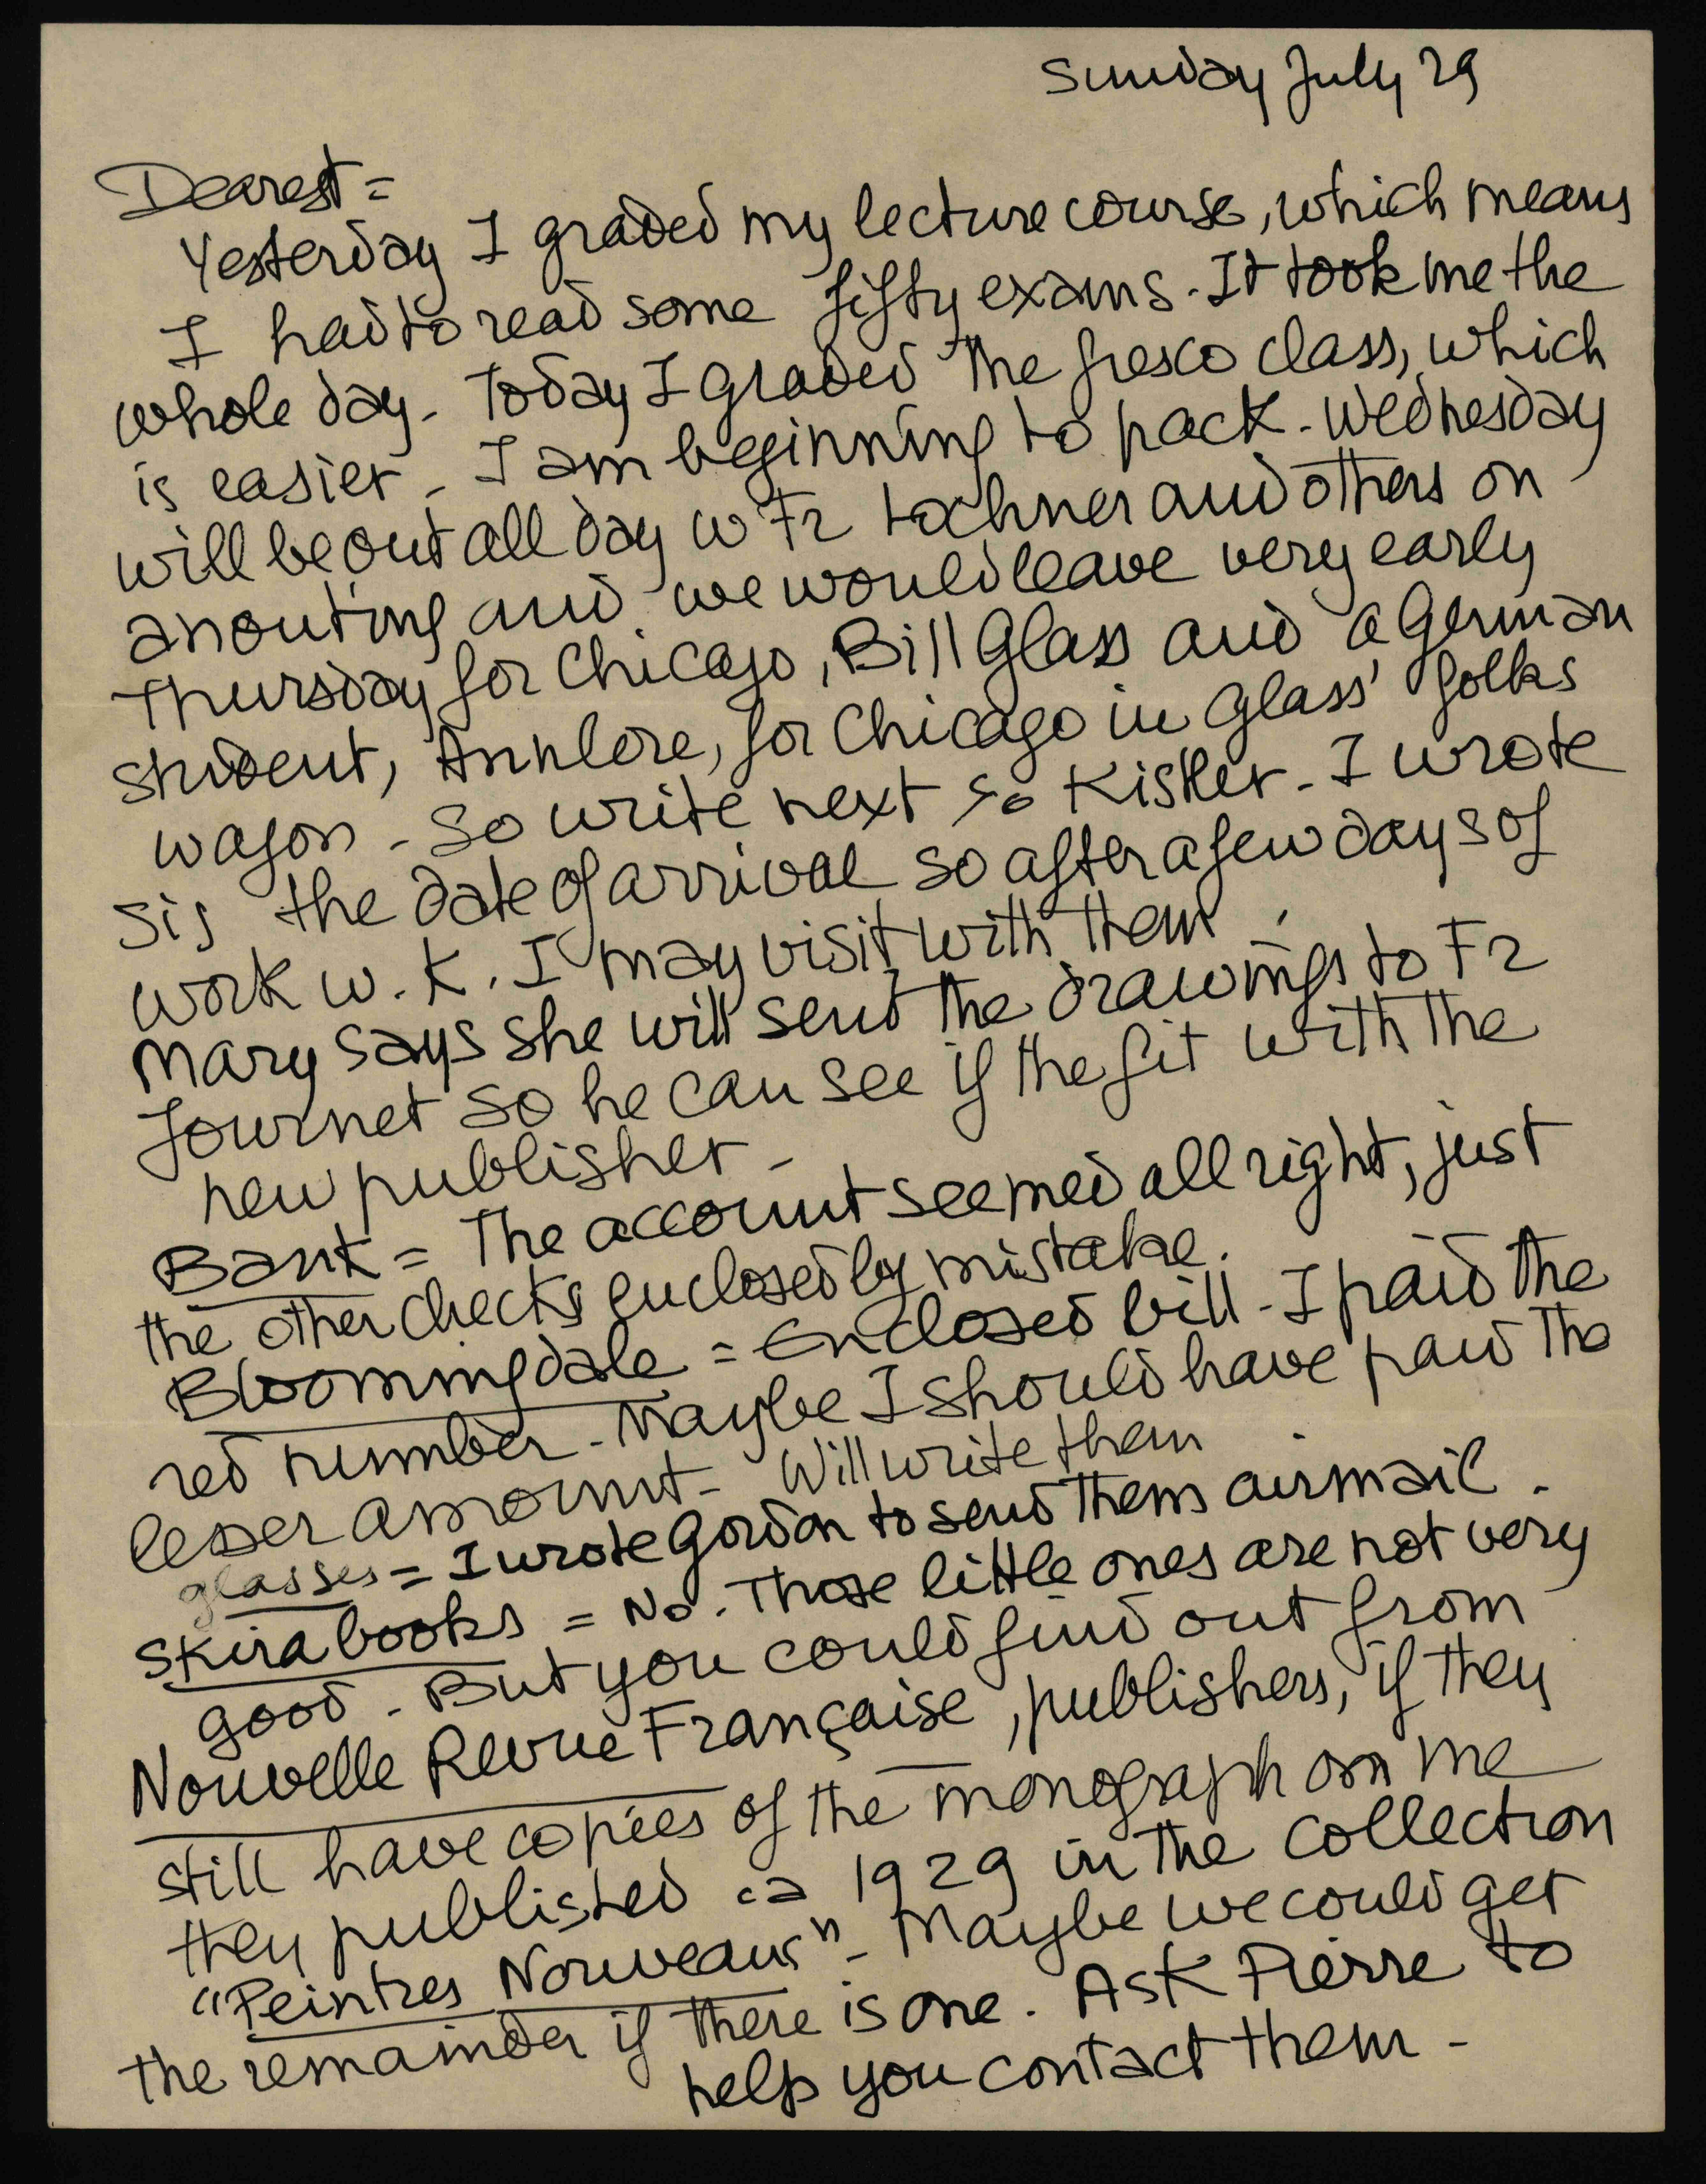 Sunday July 29
Dearest =
Yesterday I graded my lecture course, which means
I had to read some fifty exams. It took me the
whole day. Today I graded the fresco class, which
is easier. I am beginning to pack. Wednesday
will be out all day w Fr Lochner and others on
an outing and we would leave very early
Thursday for Chicago, Bill Glass and a German
student, Annlore, for Chicago in Glass' folks
wagon. So write next % Kistler. I wrote
Sis the date of arrival so after a few days of
work w. K. I may visit with them.
Mary says she will send the drawings to Fr
Journet so he can see if the fit with the
new publisher -
Bank = The account seemed all right, just
the other checks enclosed by mistake.
Bloomingdale = Enclosed bill. I paid the
red number. Maybe I should have paid the
lesser amount. Will write them
glasses = I wrote Gordon to send them airmail.
Skira books = No. Those little ones are not very
good. But you could find out from
Nouvelle Revue Française, publishers, if they
still have copies of the monograph on me
they published ca 1929 in the collection
"Peintres Nouveaux". Maybe we could get
the remainder if there is one. Ask Pierre to
help you contact them -